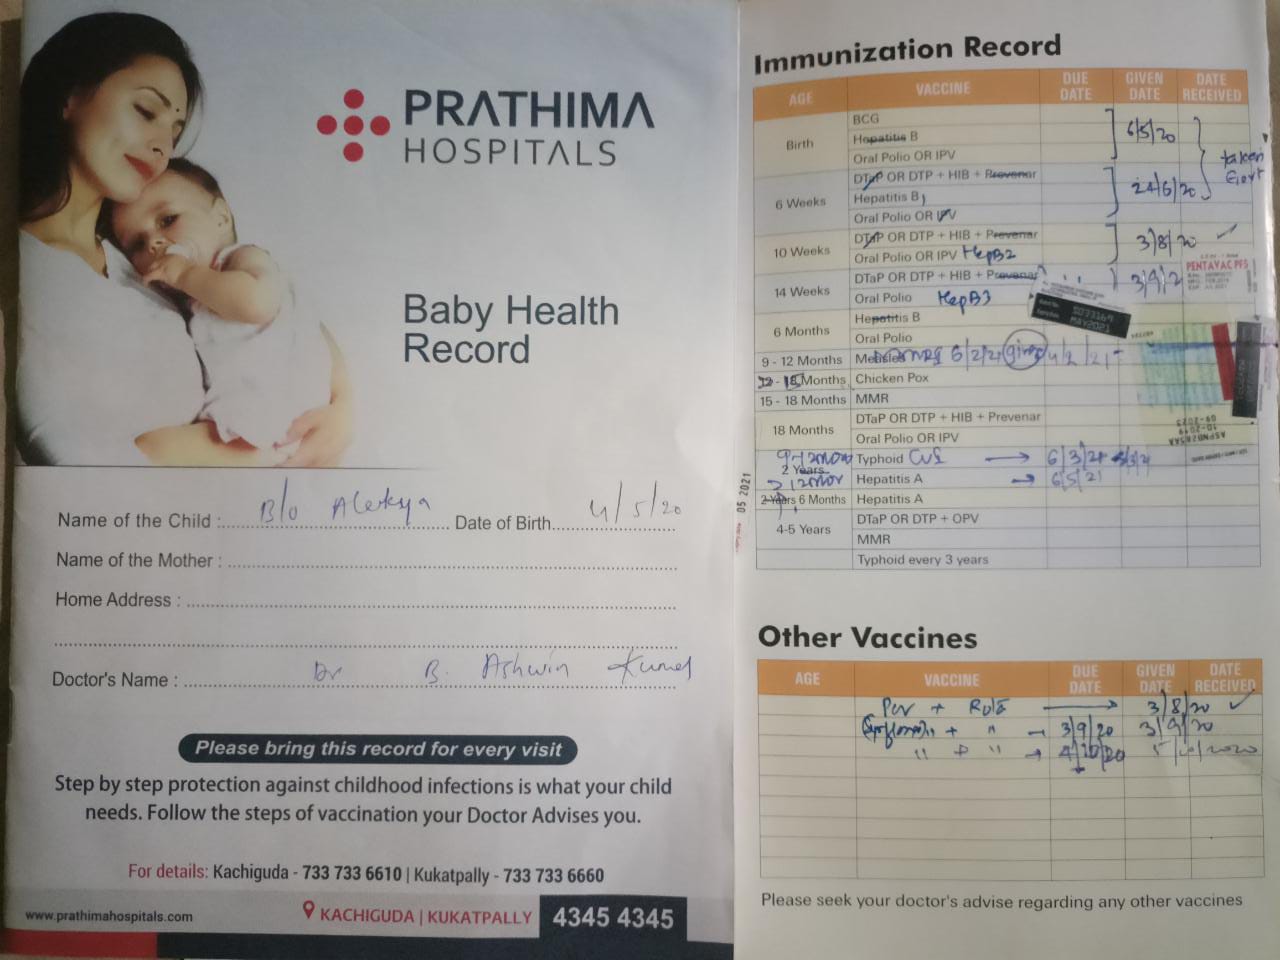 PRATHIMA
HOSPITALS
Baby Health
Record
Name of the Child : B/o Alekya Date of Birth 4/5/20
Name of the Mother :
Home Address :
Doctor's Name : Dr B. Ashwin Kumar
Please bring this record for every visit
Step by step protection against childhood infections is what your child
needs. Follow the steps of vaccination your Doctor Advises you.
For details: Kachiguda - 733 733 6610 | Kukatpally - 733 733 6660
www.prathimahospitals.com KACHIGUDA | KUKATPALLY 4345 4345
Immunization Record
AGE VACCINE DUE DATE GIVEN DATE DATE RECEIVED
Birth BCG
Hepatitis B 6/5/20
Oral Polio OR IPV taken
6 Weeks DTaP OR DTP + HIB + Prevenar Govt
Hepatitis B1 24/6/20
Oral Polio OR IPV
10 Weeks DTaP OR DTP + HIB + Prevenar 3/8/20
Oral Polio OR IPV HepB2
14 Weeks DTaP OR DTP + HIB + Prevenar 3/9/2 PENTAVAC PFS
Oral Polio HepB3
MAY2021
6 Months Hepatitis B
Oral Polio
9 - 12 Months Measles 6/2/21 given 4/2/21
15 Months Chicken Pox
15 - 18 Months MMR
18 Months DTaP OR DTP + HIB + Prevenar
Oral Polio OR IPV
10-2019
09-2023
2 Years Typhoid 6/3/21
Hepatitis A 6/5/21
05 2021
2 Years 6 Months Hepatitis A
4-5 Years DTaP OR DTP + OPV
MMR
Typhoid every 3 years
Other Vaccines
AGE VACCINE DUE DATE GIVEN DATE DATE RECEIVED
PCV + Rota 3/8/20
+ " 3/9/20 3/9/20
" + " 4/10/20
Please seek your doctor's advise regarding any other vaccines